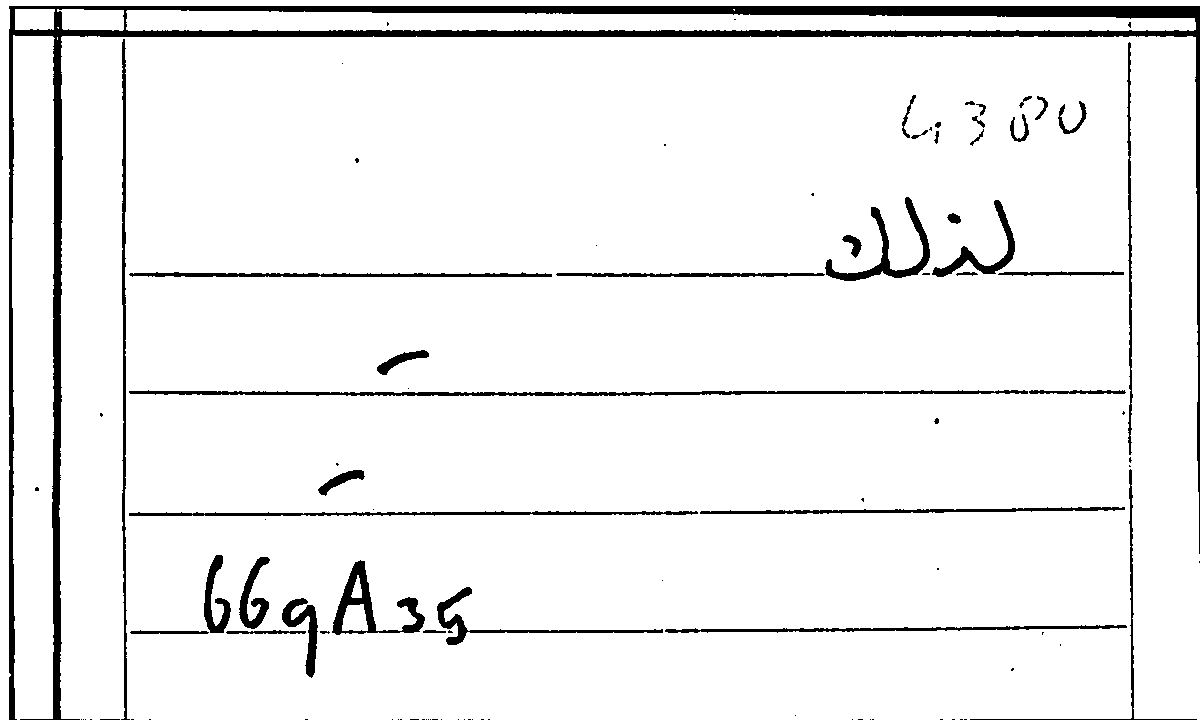 4380
لذلك
-
-
669A35